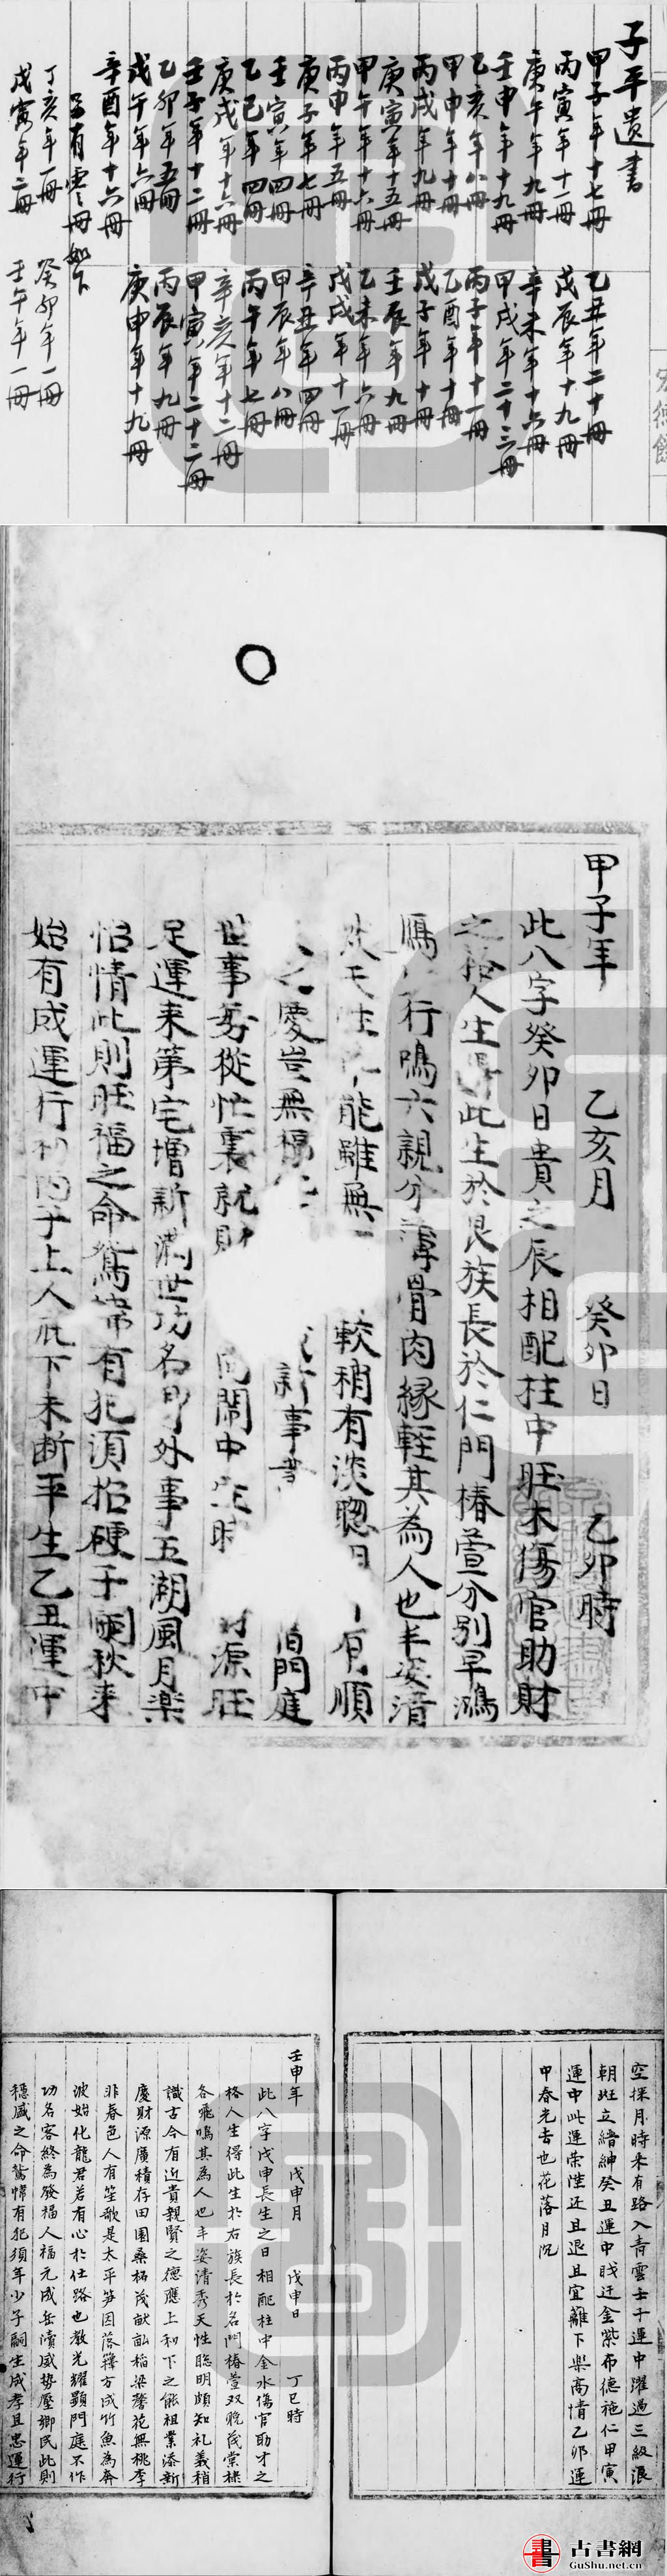 子平遺書
甲子年十七冊　乙丑年二十冊
丙寅年十一冊　戊辰年十九冊
庚午年九冊　辛未年十六冊
壬申年十九冊　甲戌年二十三冊
乙亥年八冊　丙子年十一冊
甲申年十冊　乙酉年十冊
丙戌年九冊　戊子年十冊
庚寅年十五冊　壬辰年九冊
甲午年十六冊　乙未年六冊
丙申年五冊　戊戌年十一冊
庚子年七冊　辛丑年四冊
壬寅年四冊　甲辰年八冊
乙巳年四冊　丙午年七冊
庚戌年十六冊　辛亥年十二冊
壬子年十二冊　甲寅年二十二冊
乙卯年五冊　丙辰年九冊
戊午年六冊　庚申年十九冊
辛酉年十六冊
另有零冊如下
丁亥年一冊　癸卯年一冊
戊寅年二冊　壬午年一冊
甲子年　乙亥月　癸卯日　乙卯時
此八字癸卯日貴之辰相配柱中旺木傷官助財
之格人生得此生於良族長於仁門椿萱分別早鴻
鴈行鳴六親分薄骨肉緣輕其為人也丰姿清
天性能雖無　較稍有淡聰　順
之慶豈無福　新事　門庭
世事每從忙裏就財　鬧中　時　源旺
足運來第宅增新滿世功名身外事五湖風月樂
怡情此則旺福之命鴛幃有犯須招硬子嗣秋來
始有成運行丙子上人庇下未斷平生乙丑運中
空探月時來有路入青雲壬子運中躍過三級浪
朝班立縉紳癸丑運中職迁金紫布德施仁甲寅
運中此運榮陞还且退且宜籬下樂高情乙卯運
中春光去也花落月沉
壬申年　戊申月　戊申日　丁巳時
此八字戊申長生之日相配柱中金水傷官助才之
格人生得此生於右族長於名門椿萱双晚茂棠棣
各飛鳴其為人也丰姿清秀天性聰明頗知礼義稍
識古今有近貴親賢之德應上和下之能祖業添新
慶財源廣積存田園桑柘茂畝畆稻粱馨花無桃李
非春色人有笙歌是太平笋因落籜方成竹魚為奔
波始化龍君若有心於仕路也教光耀顯門庭不作
功名客終為發福人福元成岳瀆威势壓鄉民此則
穩盛之命鴛幃有犯須年少子嗣生成孝且忠運行
古書網
GuShu.net.cn